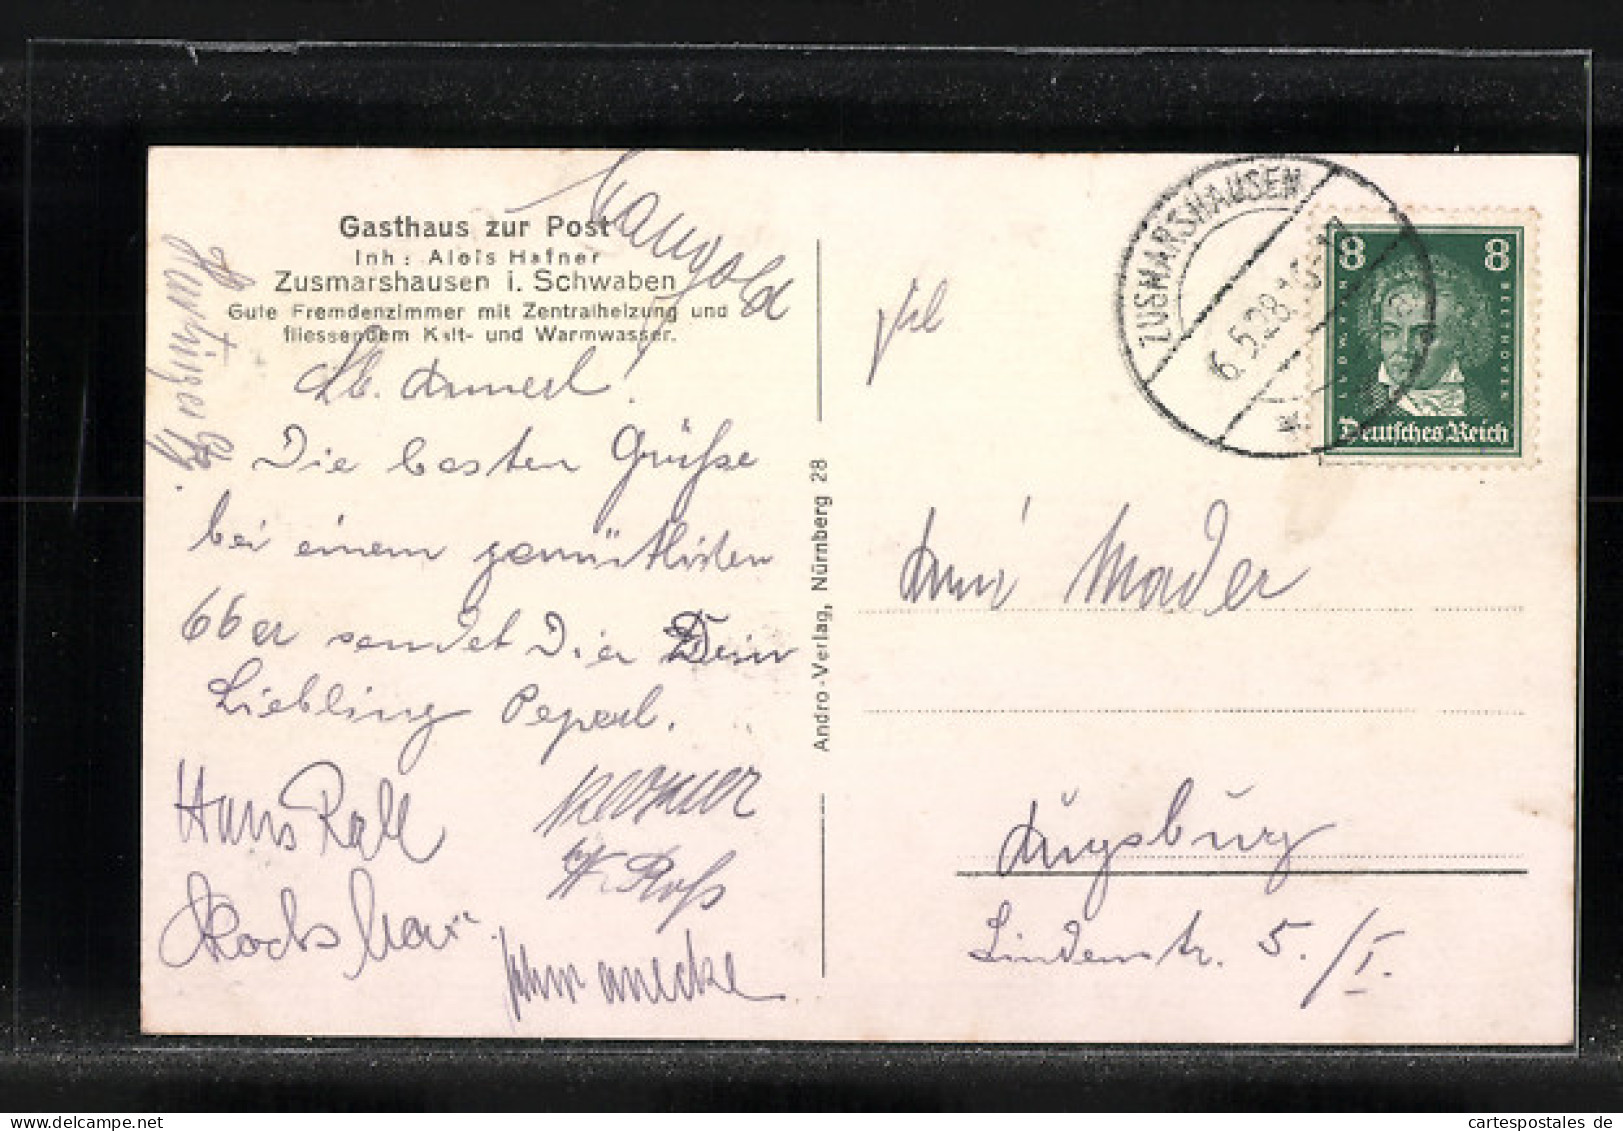 Gasthaus zur Post
Inh: Alois Hafner
Zusmarshausen i. Schwaben
Gute Fremdenzimmer mit Zentralheizung und
fliessendem Kalt- und Warmwasser.
Mangold
Lb. Annerl!
Die besten Grüße
bei einem gemütlichen
66er sendet Dir Dein
Liebling Peperl.
Hans Rall
W. Roß
Andro-Verlag, Nürnberg 28
ZUSMARSHAUSEN
6.5.28.
8 8
LUDWIG VAN BEETHOVEN
Deutsches Reich
Frl
Anni Mader
Augsburg
Lindenstr. 5./I.
www.cartespostales.de